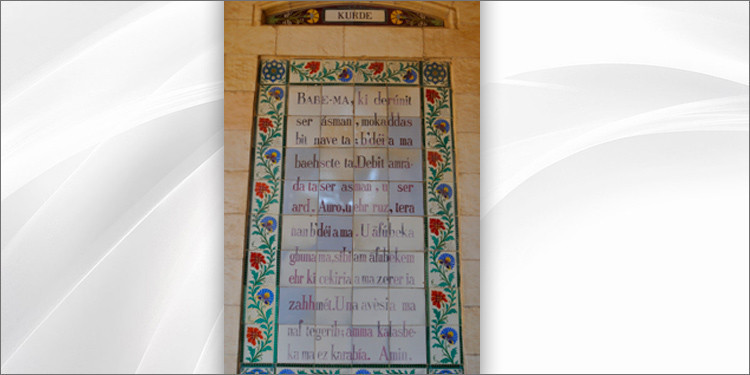 KURDE
BABE-MA, ki derúnit
ser ásman, mokaddas
bü nave ta; b'dëi a ma
baehscte ta. Debit amrá-
da ta ser asman, u ser
ard. Auro, u ehr ruz, tera
nan b'dëi a ma. U áfúbeka
ghuna ma, sibi am áfubekem
ehr ki cekiria ma zerer ia
zahhmêt. U na avêsia ma
naf tegerib; amma kalasbe-
ka ma ez karabia. Amin.